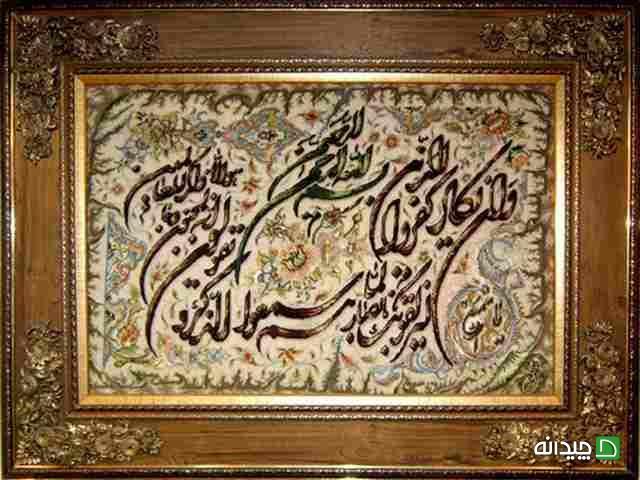 بسم الله الرحمن الرحیم
وان یکاد الذین کفروا
لیزلقونک بابصارهم لما سمعوا الذکر و
یقولون انه لمجنون و
ما هو الا ذکر للعالمین
چیدانه